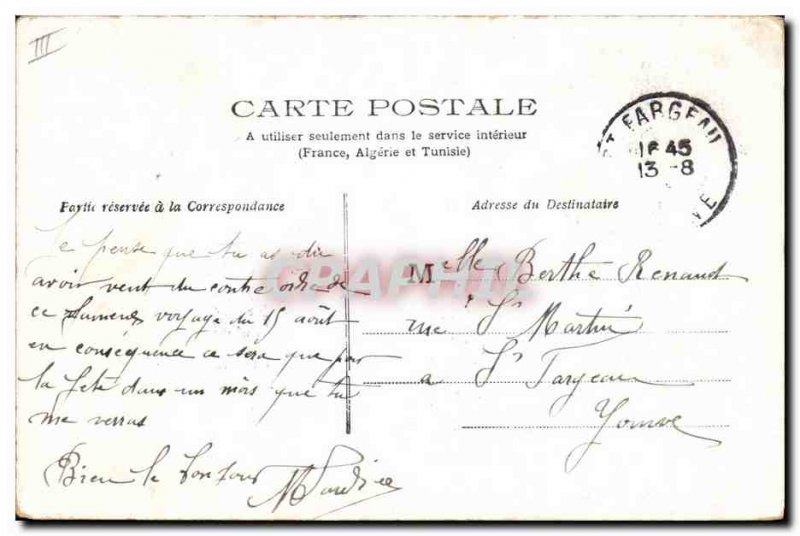 III
CARTE POSTALE
A utiliser seulement dans le service intérieur
(France, Algérie et Tunisie)
ST FARGEAU
16 45
13 -8
Partie réservée à la Correspondance
Adresse du Destinataire
Je pense que tu as dû
avoir vent du contre ordre de
ce fameux voyage du 15 août
en conséquence ce sera que pour
la fête dans un mois que tu
me verras
Bien le bonjour
Melle Berthe Renaud
rue St Martin
a St Fargeau
Yonne